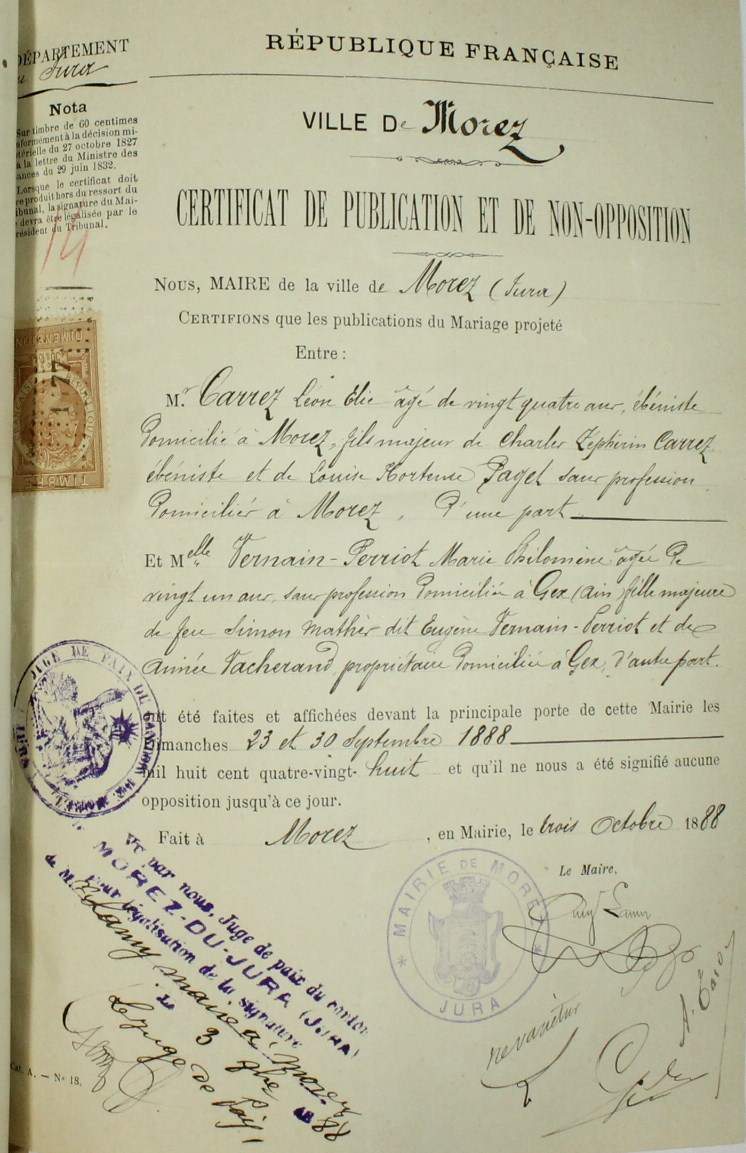 DÉPARTEMENT
Jura
Nota
Sur timbre de 60 centimes
conformément à la décision mi-
nistérielle du 27 octobre 1827
à la lettre du Ministre des
Finances du 29 juin 1832.
Lorsque le certificat doit
être produit hors du ressort du
Tribunal, la signature du Mai-
re devra être légalisée par le
Président du Tribunal.
RÉPUBLIQUE FRANÇAISE
VILLE De Morez
CERTIFICAT DE PUBLICATION ET DE NON-OPPOSITION
NOUS, MAIRE de la ville de Morez (Jura)
CERTIFIONS que les publications du Mariage projeté
Entre :
Mr Carrez Léon Elie âgé de vingt quatre ans, ébéniste
Domicilié à Morez, fils majeur de Charles Zéphirin Carrez
ébéniste et de Louise Hortense Paget sans profession
Domiciliés à Morez, D'une part
Et Melle Vernain-Perriot Marie Philomène âgée De
vingt un ans, sans profession Domiciliée à Gex (Ain) fille majeure
de feu Simon Mathèr dit Eugène Vernain-Perriot et de
Aimée Vacherand propriétaire Domiciliée à Gex, D'autre part.
ont été faites et affichées devant la principale porte de cette Mairie les
Dimanches 23 et 30 Septembre 1888
mil huit cent quatre-vingt-huit et qu'il ne nous a été signifié aucune
opposition jusqu'à ce jour.
Fait à Morez, en Mairie, le trois Octobre 1888
Le Maire,
MAIRIE DE MOREZ
JURA
JUGE DE PAIX DU CANTON DE MOREZ
TIMBRE
DIMENSION
1 77
Vu par nous, Juge de paix du canton
MOREZ-DU-JURA (JURA)
Pour légalisation de la signature
de M. Lamy maire à Morez
Le 3 8bre 1888
Le juge de Paix
ne varietur
Cat. A. — No 18.